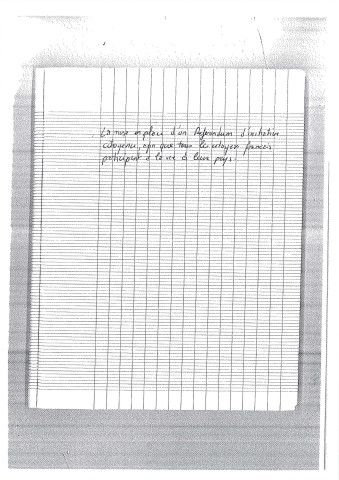 La mise en place d'un Referendum d'initiative
citoyenne, afin que tous les citoyens français
participent à la vie de leur pays.